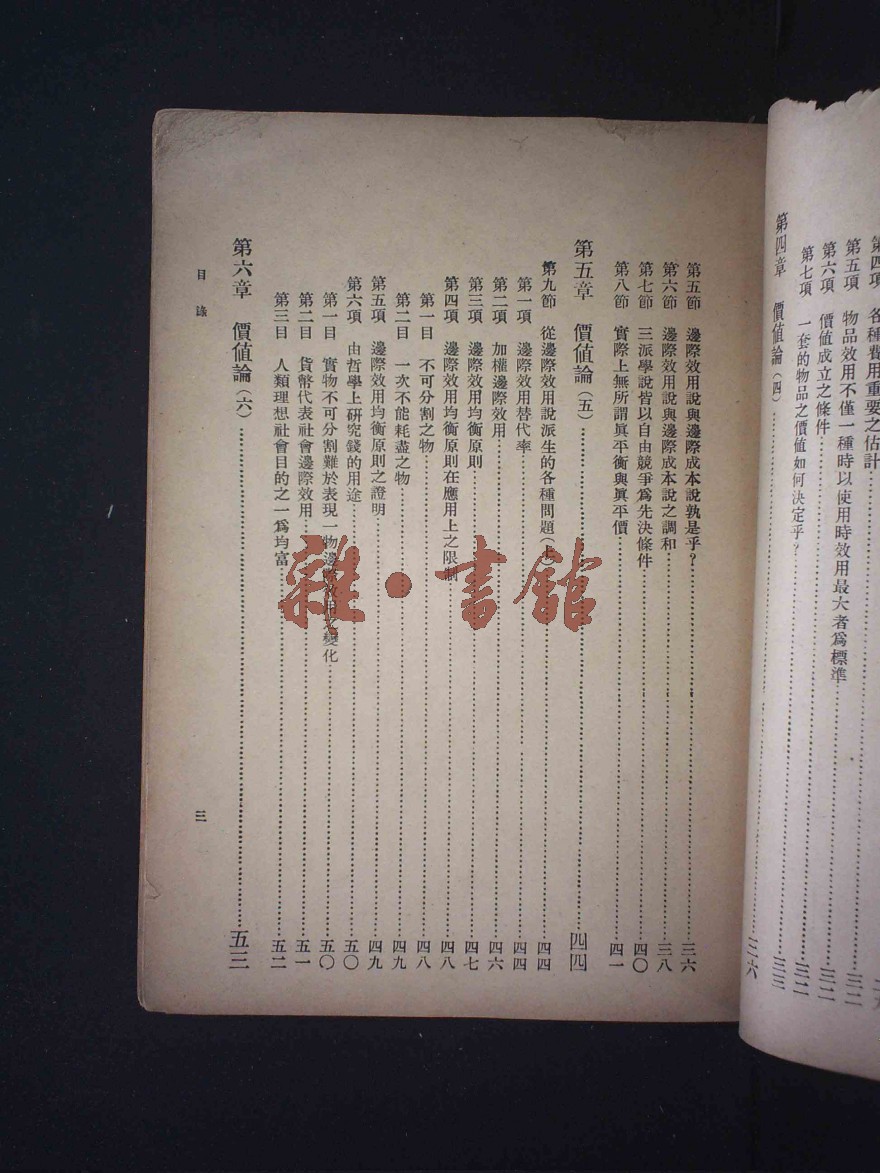 第四項　各種費用重要之估計
第五項　物品效用不僅一種時以使用時效用最大者爲標準……三二
第六項　價值成立之條件……三二
第七項　一套的物品之價値如何決定乎？……三三
第四章　價値論（四）……三六
第五節　邊際效用說與邊際成本說孰是乎？……三六
第六節　邊際效用說與邊際成本說之調和……三八
第七節　三派學說皆以自由競爭爲先決條件……四〇
第八節　實際上無所謂眞平衡與眞平價……四一
第五章　價値論（五）……四四
第九節　從邊際效用說派生的各種問題（上）……四四
第一項　邊際效用替代率……四四
第二項　加權邊際效用……四六
第三項　邊際效用均衡原則……四七
第四項　邊際效用均衡原則在應用上之限制……四八
第一目　不可分割之物……四八
第二目　一次不能耗盡之物……四九
第五項　邊際效用均衡原則之證明……四九
第六項　由哲學上研究錢的用途……五〇
第一目　實物不可分割難於表現一物邊際效用之變化……五〇
第二目　貨幣代表社會邊際效用……五一
第三目　人類理想社會目的之一爲均富……五二
第六章　價値論（六）……五三
目錄
三
雜·書館